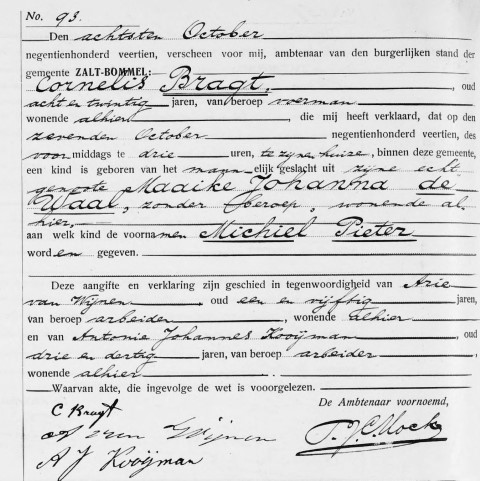 No. 93.
Den achtsten October
negentienhonderd veertien, verscheen voor mij, ambtenaar van den burgerlijken stand der
gemeente ZALT-BOMMEL:
Cornelis Bragt, oud
acht en twintig jaren, van beroep voerman
wonende alhier, die mij heeft verklaard, dat op den
zevenden October negentienhonderd veertien, des
voor middags te drie uren, te zijne huize, binnen deze gemeente,
een kind is geboren van het mannelijk geslacht uit zijne echt
genoote Maaike Johanna de
Waal, zonder beroep, wonende al-
hier,
aan welk kind de voornamen Michiel Pieter
worden gegeven.
Deze aangifte en verklaring zijn geschied in tegenwoordigheid van Arie
van Wijnen, oud een en vijftig jaren,
van beroep arbeider, wonende alhier
en van Antonie Johannes Kooijman, oud
drie en dertig jaren, van beroep arbeider
wonende alhier
Waarvan akte, die ingevolge de wet is vooorgelezen.
De Ambtenaar voornoemd,
C Bragt
van Wijnen
A J Kooijman